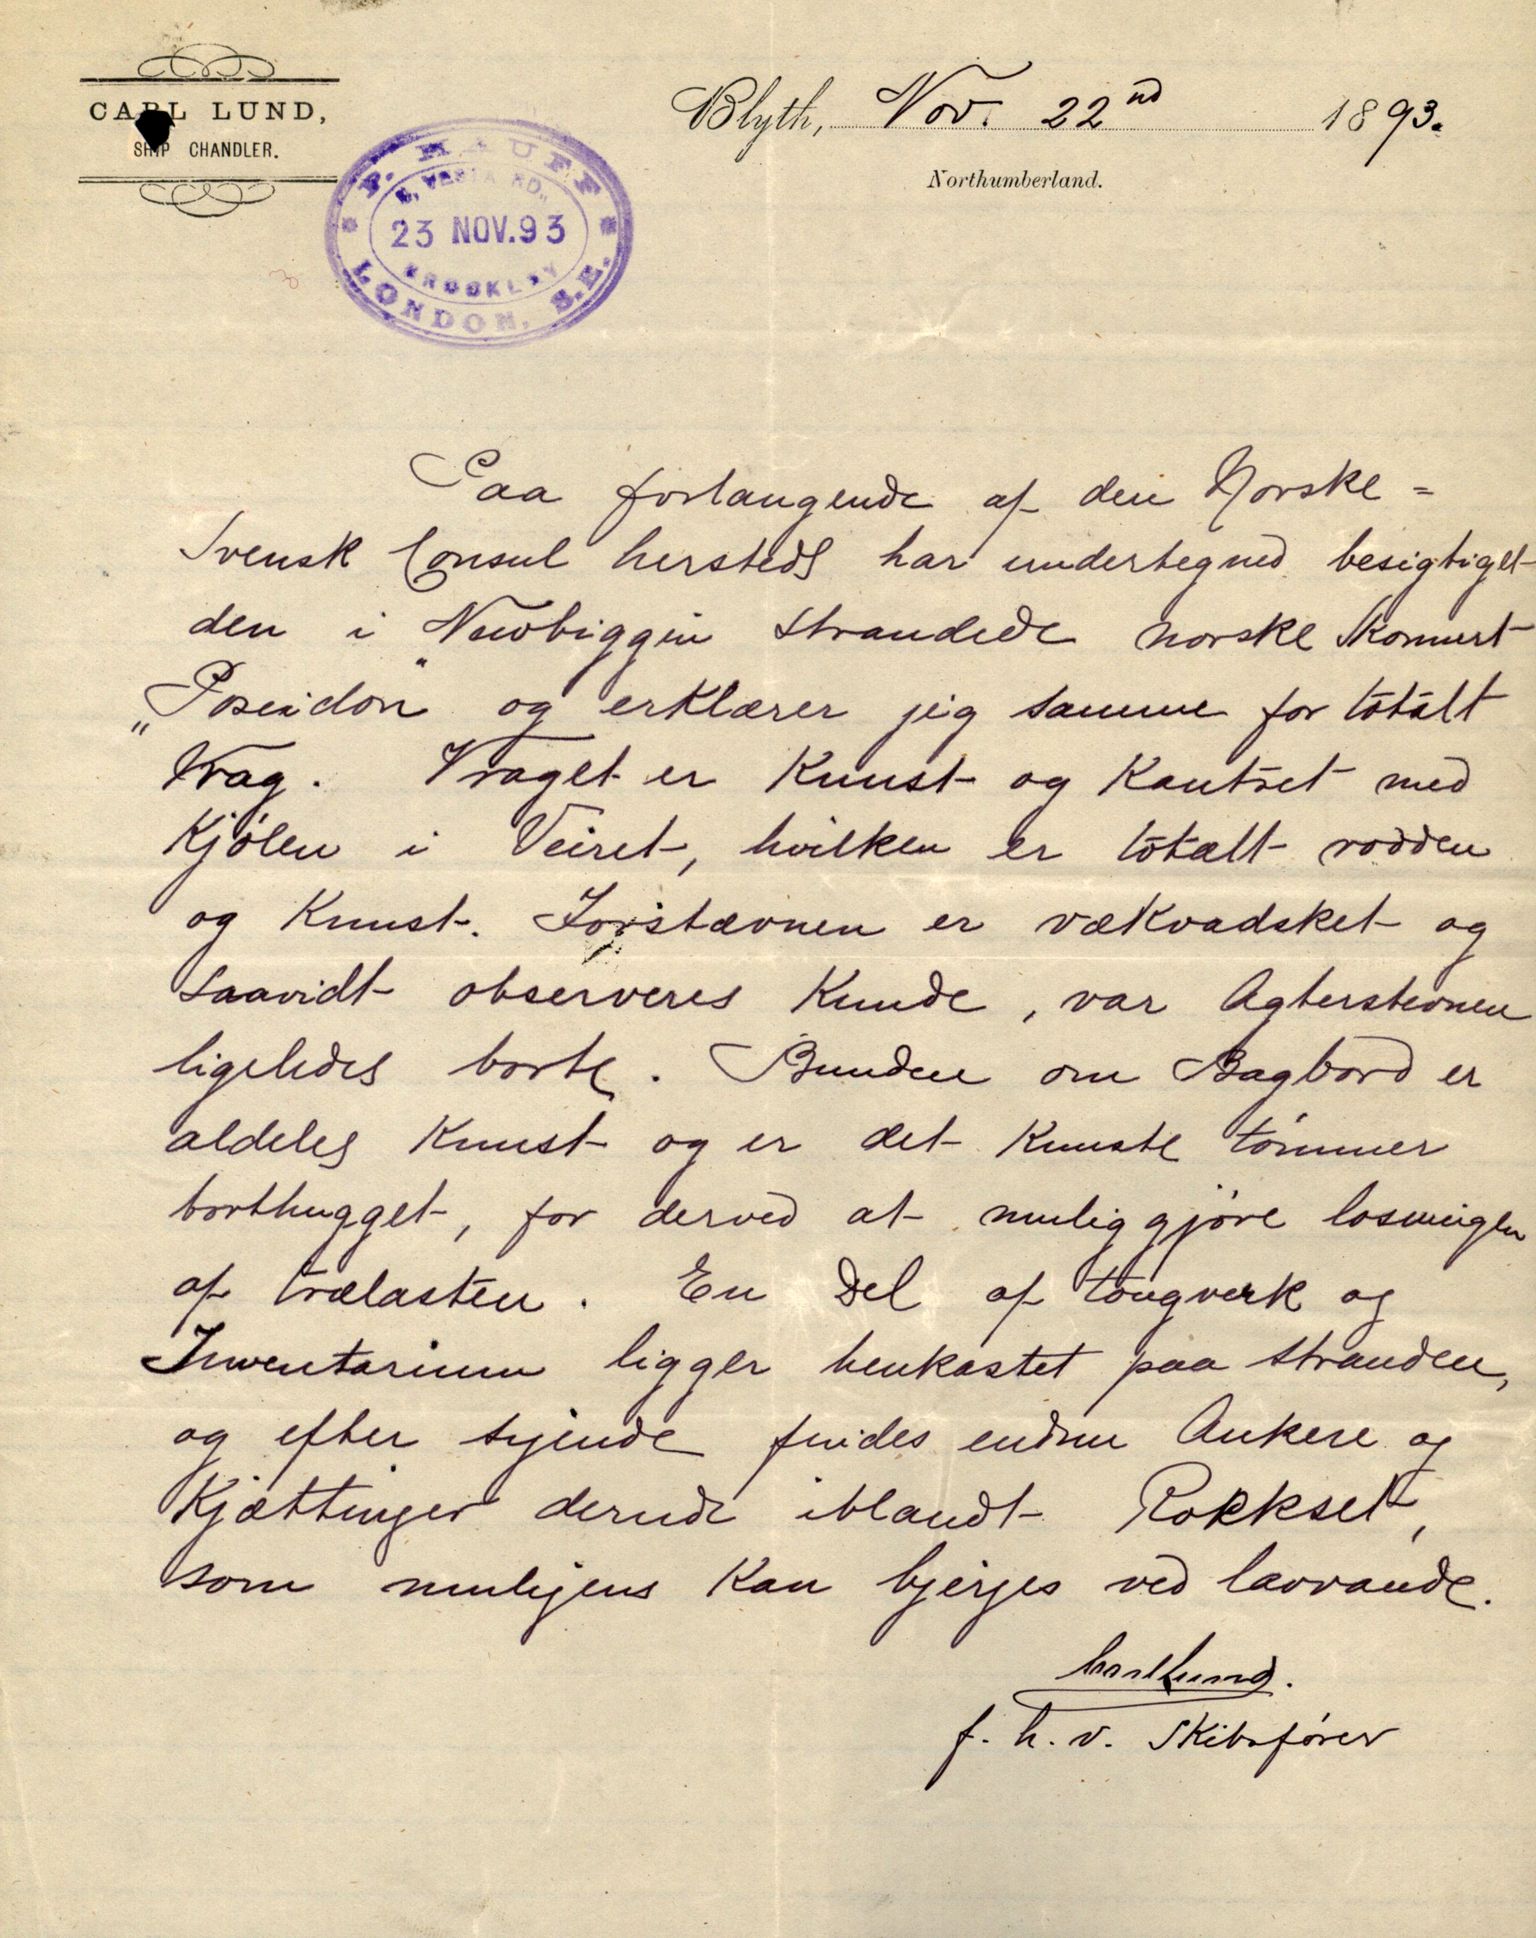 CARL LUND,
SHIP CHANDLER.
Blyth, Nov. 22nd 1893.
Northumberland.
F. HAUFF
VESTA RD.,
23 NOV.93
BROCKLEY
LONDON, S.E.
Paa forlangende af den Norske =
Svensk Consul hersteds har undertegned besigtiget
den i Newbiggin strandede norske Skonnert
„Poseidon" og erklærer jeg samme for totalt
Vrag. Vraget er Knust og Kantret med
Kjølen i Veiret, hvilken er totalt rodden
og Knust. Forstævnen er vækvadsket og
saavidt observeres Kunde, var Agterstevnen
ligeledes borte. Bunden om Bagbord er
aldeles Knust og er det Knuste tömmer
borthugget, for derved at muliggjöre losningen
af trælasten. En Del af tougverk og
Inventarium ligger henkastet paa stranden,
og efter syende findes endnu Ankere og
Kjættinger derude iblandt Rokkset,
som muligens Kan bjerjes ved lavvande.
Carl Lund.
f. h. v. Skibsförer